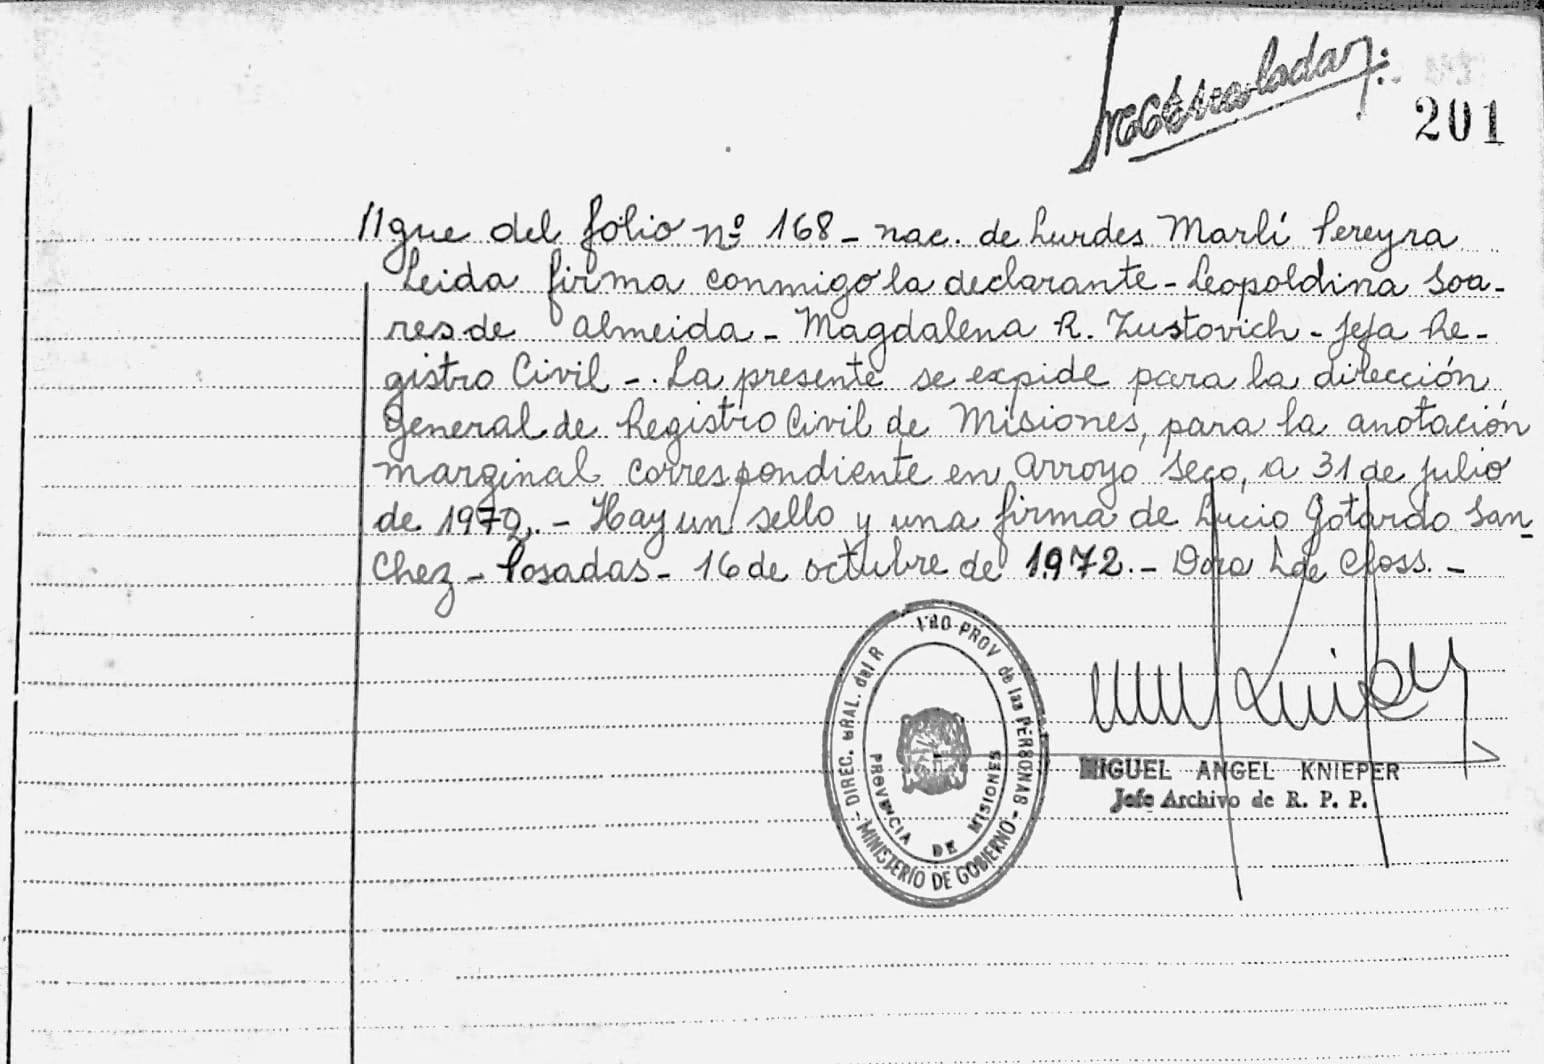 201
//gue del folio nº 168 - nac. de Lurdes Marlí Pereyra
Leida firma conmigo la declarante - Leopoldina Soa-
res de almeida - Magdalena R. Zustovich - Jefa Re-
gistro Civil -. La presente se expide para la dirección
General de Registro Civil de Misiones, para la anotación
marginal correspondiente en Arroyo Seco, a 31 de julio
de 1972. - Hay un sello y una firma de Lucio Gotardo San-
chez - Posadas - 16 de octubre de 1.972. - Dora L de Closs. -
DIREC. GRAL. del R PROV de las PERSONAS
- MINISTERIO DE GOBIERNO -
PROVINCIA DE MISIONES
MIGUEL ANGEL KNIEPER
Jefe Archivo de R. P. P.